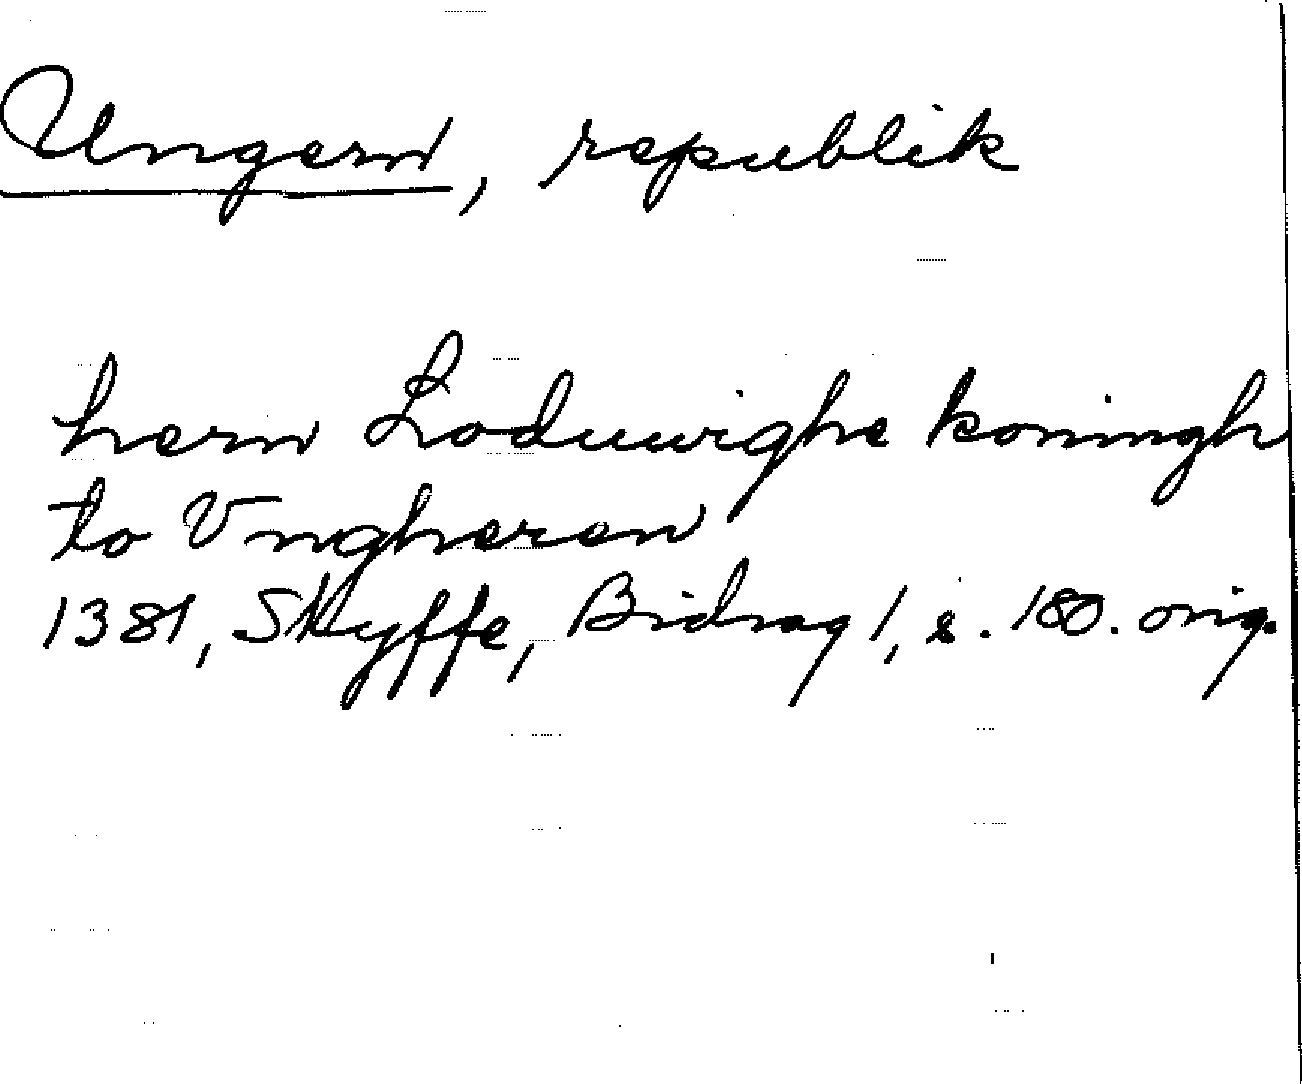 Ungern, republik
hern Loduwighe koningh
to Vngheren
1381, Styffe, Bidrag 1, s. 180. orig.